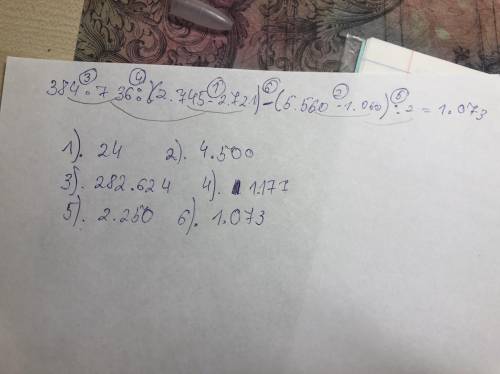 ③ ④ ① ⑥ ② ⑤
384 · 736 : (2.745 - 2.721) - (5.560 - 1.060) : 2 = 1.073
1). 24 2). 4.500
3). 282.624 4). 1.177
5). 2.250 6). 1.073